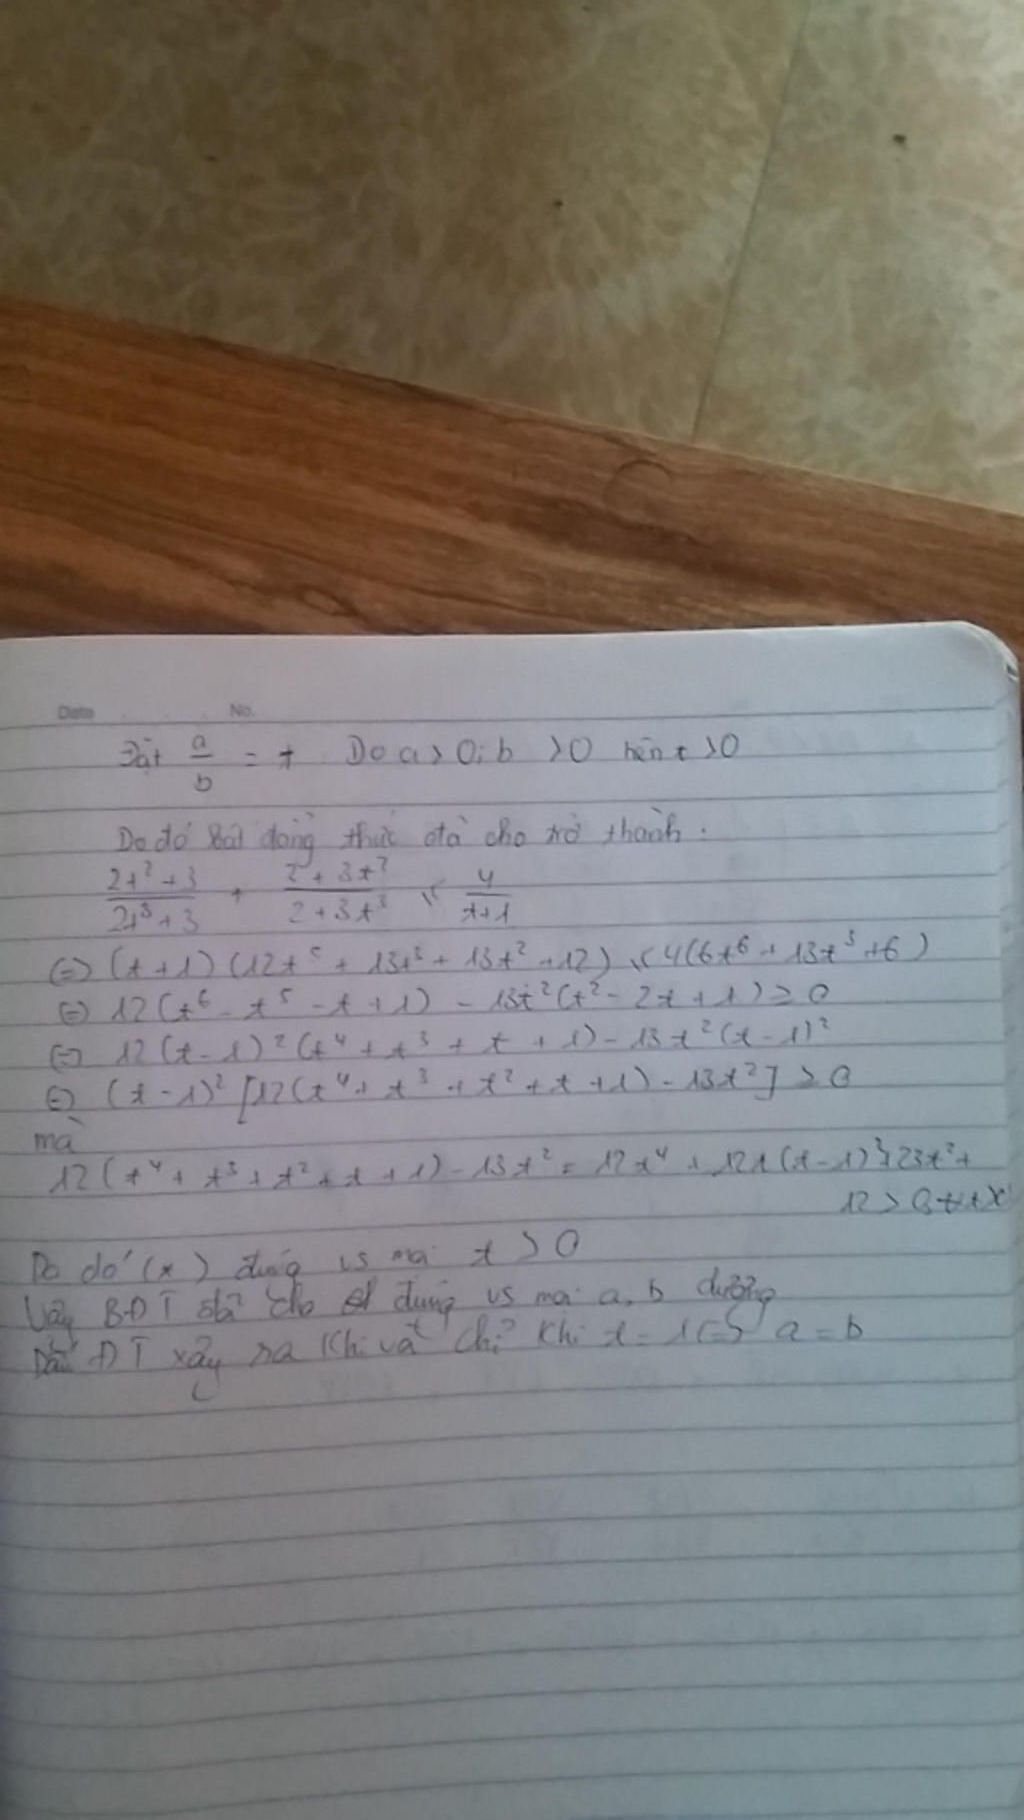 Date No.
Đặt a/b = t Do a > 0; b > 0 nên t > 0
Do đó bất đẳng thức đã cho trở thành:
(2t² + 3)/(2t³ + 3) + (2 + 3t²)/(2 + 3t³) ≤ 4/(t+1)
(=) (t+1)(12t⁵ + 13t³ + 13t² + 12) ≤ 4(6t⁶ + 13t³ + 6)
(=) 12(t⁶ - t⁵ - t + 1) - 13t²(t² - 2t + 1) ≥ 0
(=) 12(t - 1)²(t⁴ + t³ + t + 1) - 13t²(t - 1)²
(=) (t - 1)² [12(t⁴ + t³ + t² + t + 1) - 13t²] ≥ 0
mà
12(t⁴ + t³ + t² + t + 1) - 13t² = 12t⁴ + 12t(t - 1)² + 23t² +
12 > 0
Do đó (x) đúng vs mọi t > 0
Vậy BĐT đã cho đúng vs mọi a, b dương
Dấu ĐT xảy ra khi và chỉ khi t = 1 (=) a = b